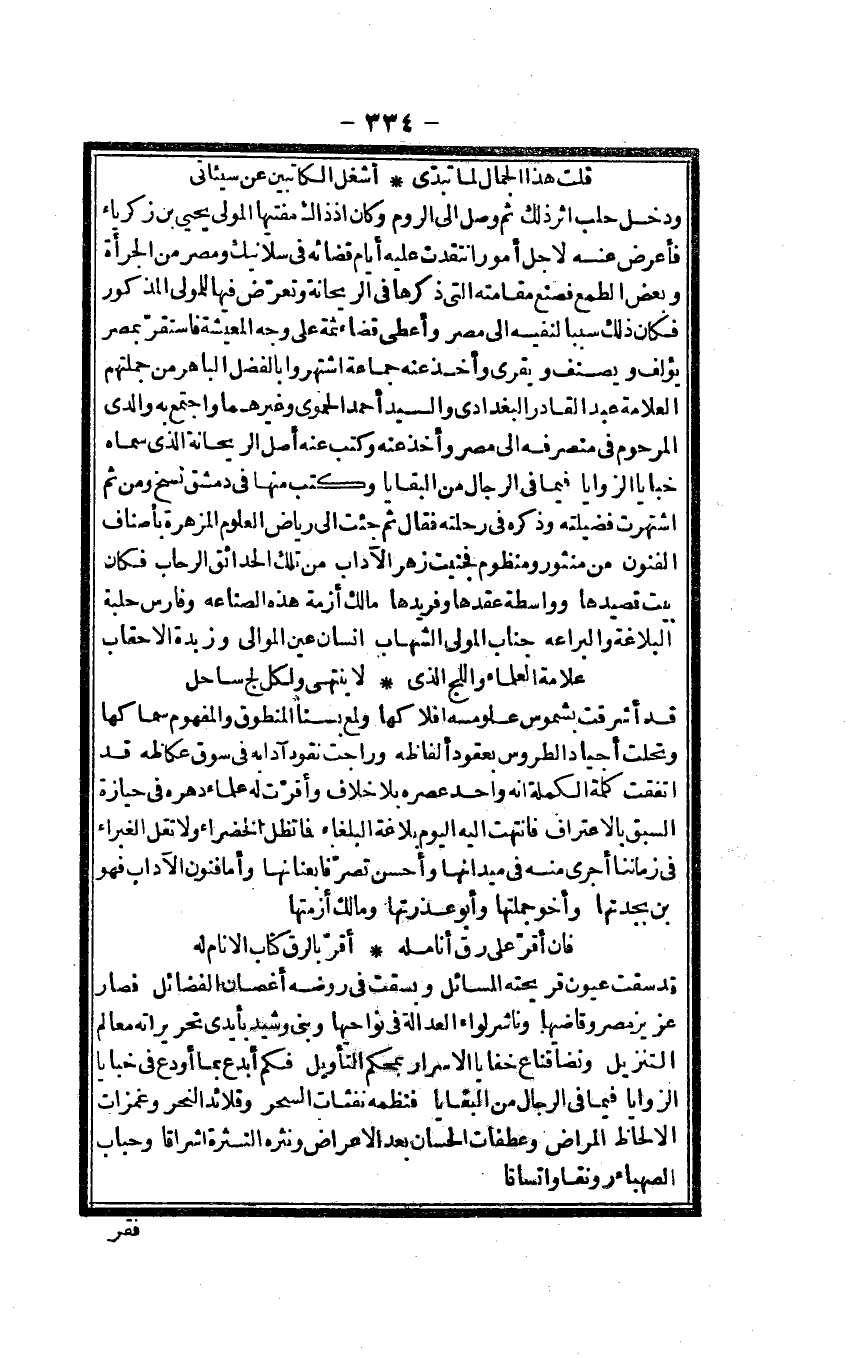 - ٣٣٤ -
قلت هذا الجمال لما تبدّى * أشغل الكاتبين عن سيئاتى
ودخل حلب اثر ذلك ثم وصل الى الروم وكان اذ ذاك مفتيها المولى يحيى بن زكرياء
فأعرض عنه لاجل أمور انتقدت عليه أيام قضائه فى سلانيك ومصر من الجرأة
وبعض الطمع فصنع مقامته التى ذكرها فى الريحانة وتعرّض فيها للمولى المذكور
فكان ذلك سببا لنفيه الى مصر وأعطى قضاء ثمة على وجه المعيشة فاستقرّ بمصر
يؤلف ويصنف ويقرى وأخذ عنه جماعة اشتهروا بالفضل الباهر من جملتهم
العلامة عبد القادر البغدادى والسيد أحمد الحموى وغيرهما واجتمع به والدى
المرحوم فى منصرفه الى مصر وأخذ عنه وكتب عنه أصل الريحانة الذى سماه
خبايا الزوايا فيما فى الرجال من البقايا وكتب منها فى دمشق نسخ ومن ثم
اشتهرت فضيلته وذكره فى رحلته فقال ثم جئت الى رياض العلوم المزهرة بأصناف
الفنون من منثور ومنظوم فجنيت زهر الآداب من تلك الحدائق الرحاب فكان
بيت قصيدها وواسطة عقدها وفريدها مالك أزمة هذه الصناعه وفارس حلبة
البلاغة والبراعه جناب المولى الشهاب انسان عين الموالى وزبدة الاحقاب
علامة العلماء واللج الذى * لا ينتهى ولكل لج ساحل
قد أشرقت بشموس علومه افلاكها ولمع بسنا المنطوق والمفهوم سماكها
وتحلت أجياد الطروس بعقود ألفاظه وراجت نقود آدابه فى سوق عكاظه قد
اتفقت كلمة الكملة انه واحد عصره بلا خلاف وأقرّت له علماء دهره فى حيازة
السبق بالاعتراف فانتهت اليه اليوم بلاغة البلغاء فاتظل الخضراء ولا تقل الغبراء
فى زماننا أجرى منه فى ميدانها وأحسن تصرّفا بعنانها وأما فنون الآداب فهو
بن بجدتها وأخو جملتها وأبو عذرتها ومالك أزمتها
فان أقرّ على رق أنامله * أقرّ بالرق كتاب الانام له
قد سقت عيون قريحته المسائل وبسقت فى روضه أغصان الفضائل فصار
عزيز مصر وقاضيها وناشر لواء العدالة فى نواحيها وبنى وشيد بأيدى تحريراته معالم
التنزيل ونضا قناع خفايا الاسرار بمحكم التأويل فكم أبدع بما أودع فى خبايا
الزوايا فيما فى الرجال من البقايا فنظمه نفثات السحر وقلائد النحر وغمزات
الالحاظ المراض وعطفات الحسان بعد الاعراض ونثره النثرة اشراقا وحباب
الصهباء رونقا واتساقا
فقر